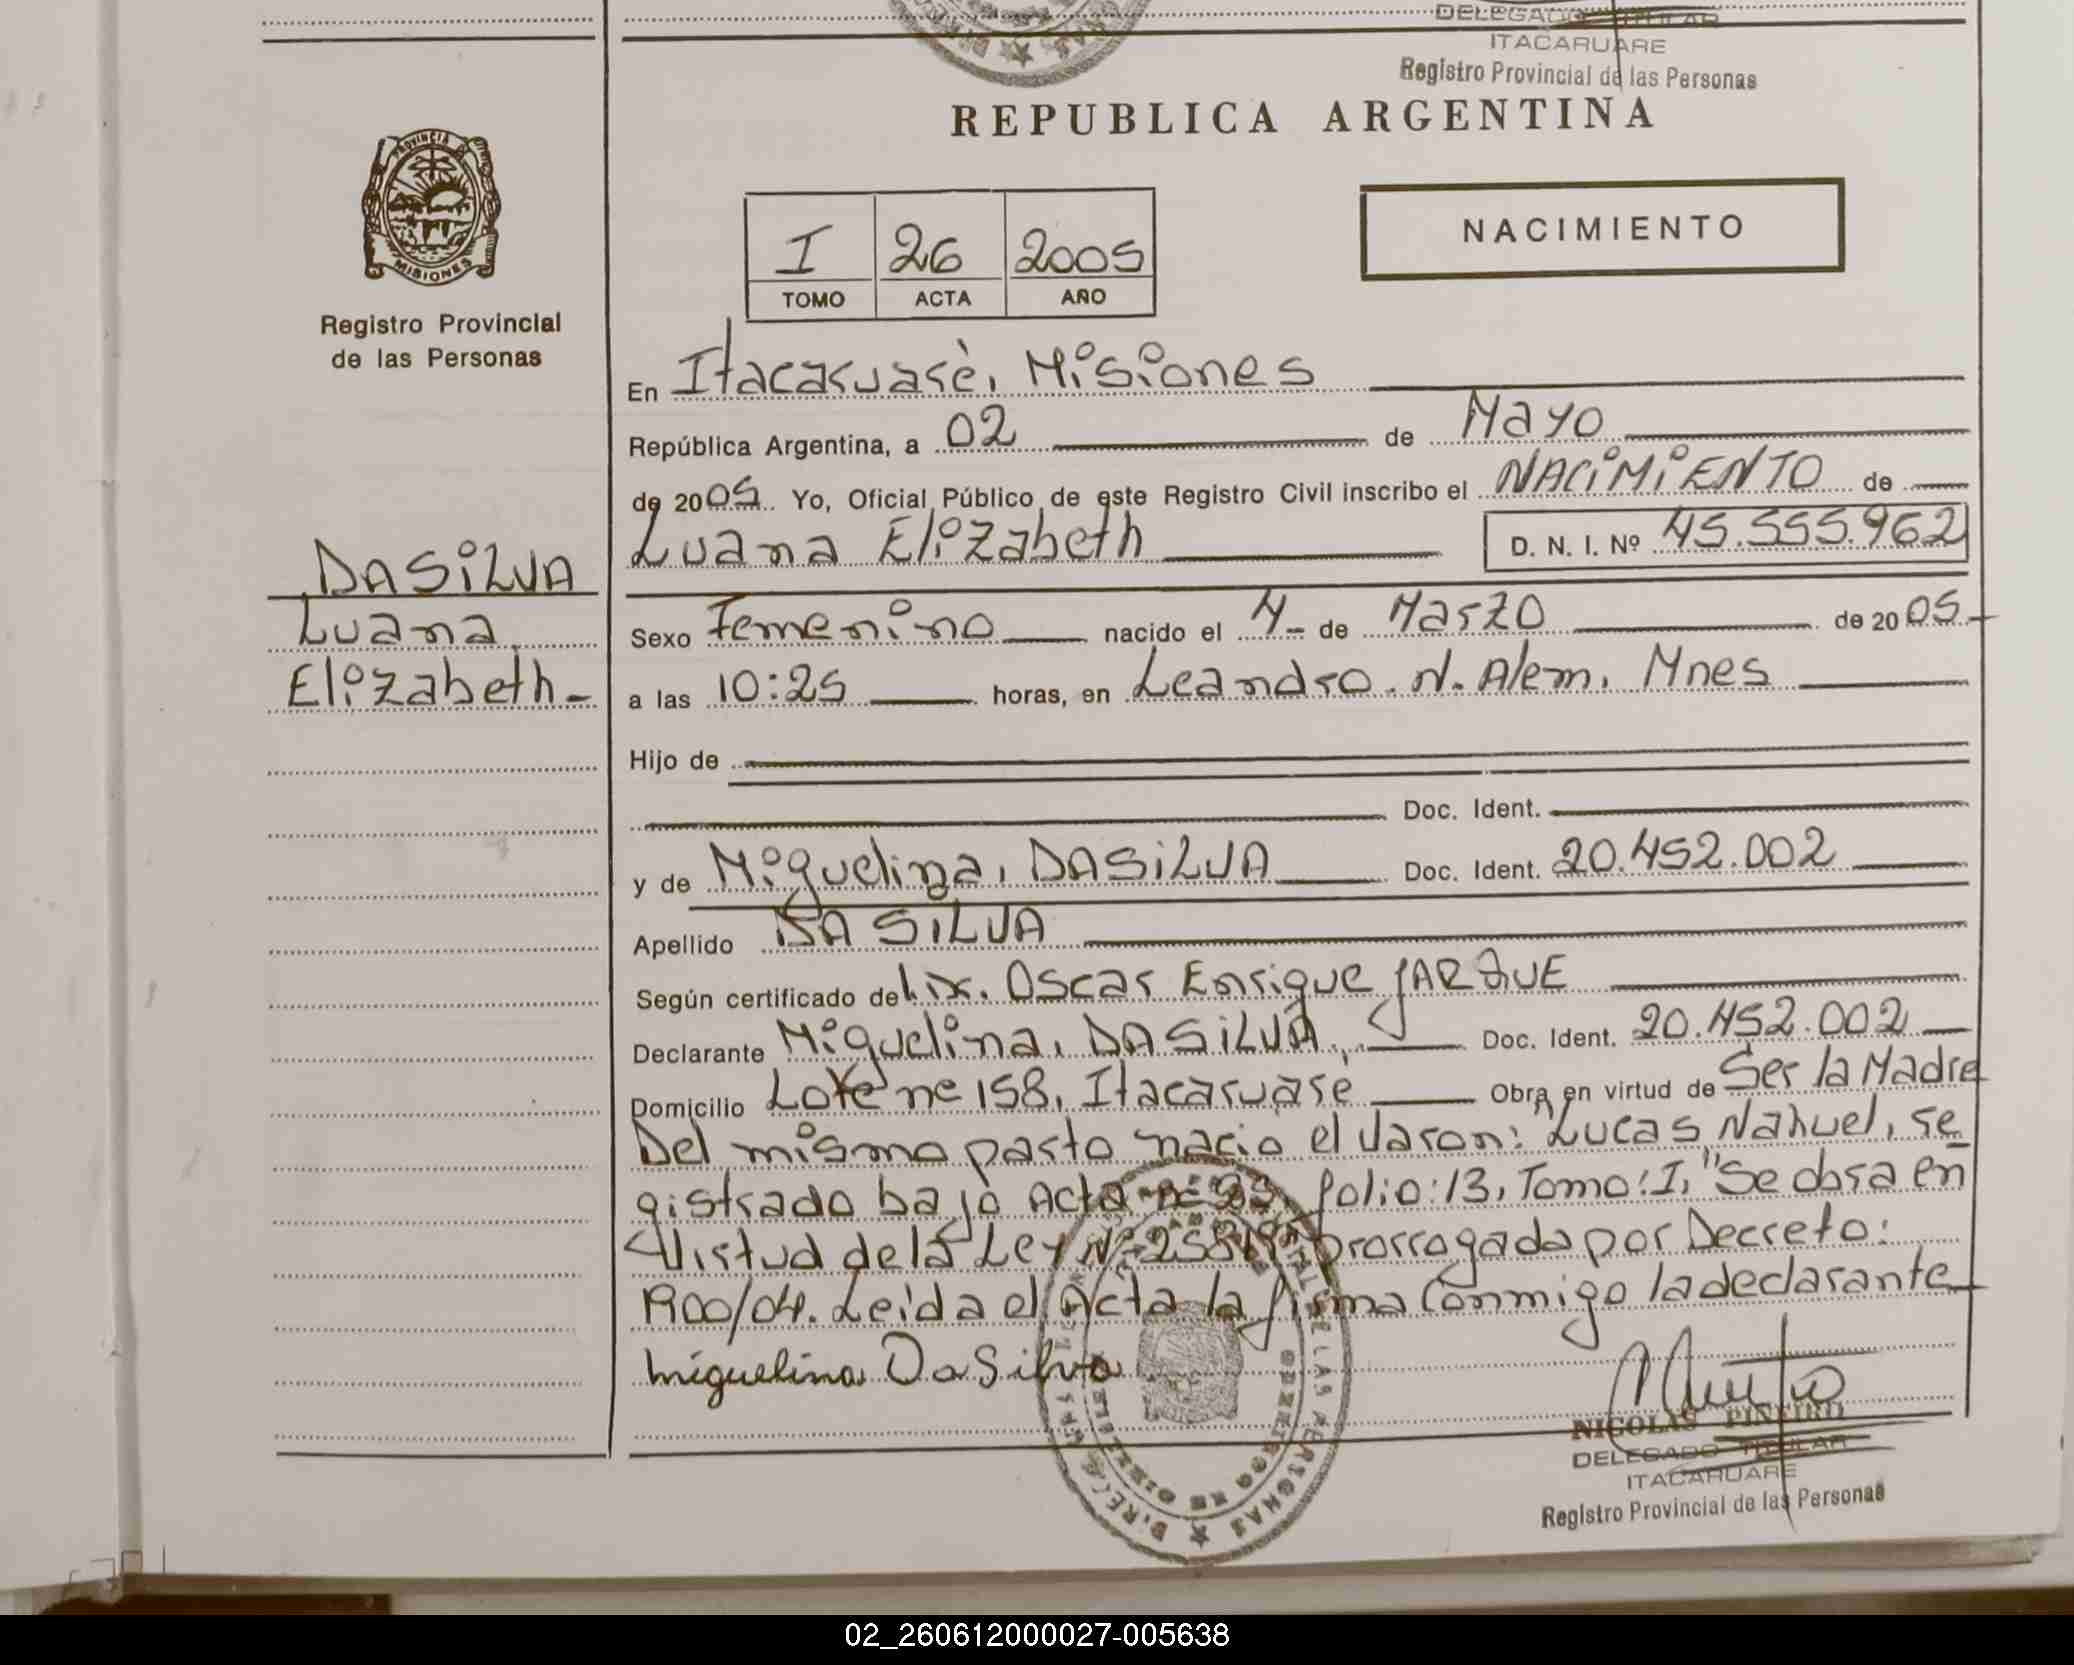 DELEGADO TITULAR
ITACARUARE
Registro Provincial de las Personas
REPUBLICA ARGENTINA
PROVINCIA DE MISIONES
Registro Provincial
de las Personas
I 26 2005
TOMO ACTA AÑO
NACIMIENTO
En Itacaruarè, Misiones
República Argentina, a 02 de Mayo
de 2005. Yo, Oficial Público de este Registro Civil inscribo el NACIMIENTO de
Luana Elizabeth D. N. I. Nº 45.555.962
DASILVA
Luana
Elizabeth-
Sexo Femenino nacido el 4- de Marzo de 2005-
a las 10:25 horas, en Leandro. N. Alem, Mnes
Hijo de
Doc. Ident.
y de Miguelina, DASILVA Doc. Ident. 20.452.002
Apellido DA SILVA
Según certificado de Oscar Enrique JARQUE
Declarante Miguelina, DASILVA, Doc. Ident. 20.452.002
Domicilio Lote nº 158, Itacaruaré Obra en virtud de Ser la Madre
Del mismo parto nacio el varon: Lucas Nahuel, re
gistrado bajo Acta nº Folio: 13, Tomo: I, "Se obra en
Virtud de la Ley Nº prorrogada por Decreto:
1900/04. Leida el Acta la firma Conmigo la declarante
Miguelina Da Silva
NICOLAS PINEIRO
DELEGADO TITULAR
ITACARUARE
Registro Provincial de las Personas
02_260612000027-005638